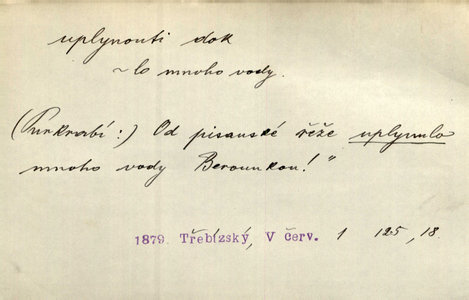 uplynouti dok
~lo mnoho vody.
(Purkrabí:) Od pisanské řeže uplynulo
mnoho vody Berounkou!"
1879. Třebízský, V červ. 1 125, 18.